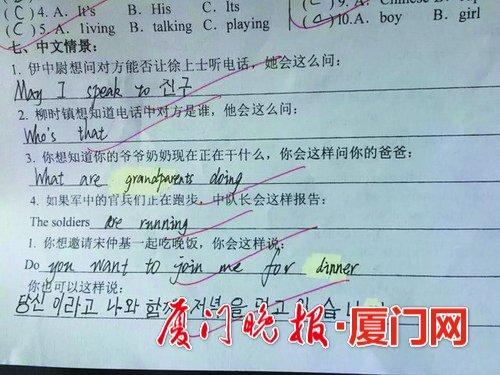 (C) 4. A. It's B. His C. Its
(C) 5. A. living B. talking C. playing
10. A. boy B. girl
七、中文情景:
1. 伊中尉想问对方能否让徐上士听电话，她会这么问:
May I speak to 진구
2. 柳时镇想知道电话中对方是谁，他会这么问:
Who's that
3. 你想知道你的爷爷奶奶现在正在干什么，你会这样问你的爸爸:
What are grandparents doing
4. 如果军中的官兵们正在跑步，中队长会这样报告:
The soldiers are running
1. 你想邀请宋仲基一起吃晚饭，你会这样说:
Do you want to join me for dinner
你也可以这样说:
당신이라고 나와 함께 저녁을 먹고
厦门晚报·厦门网